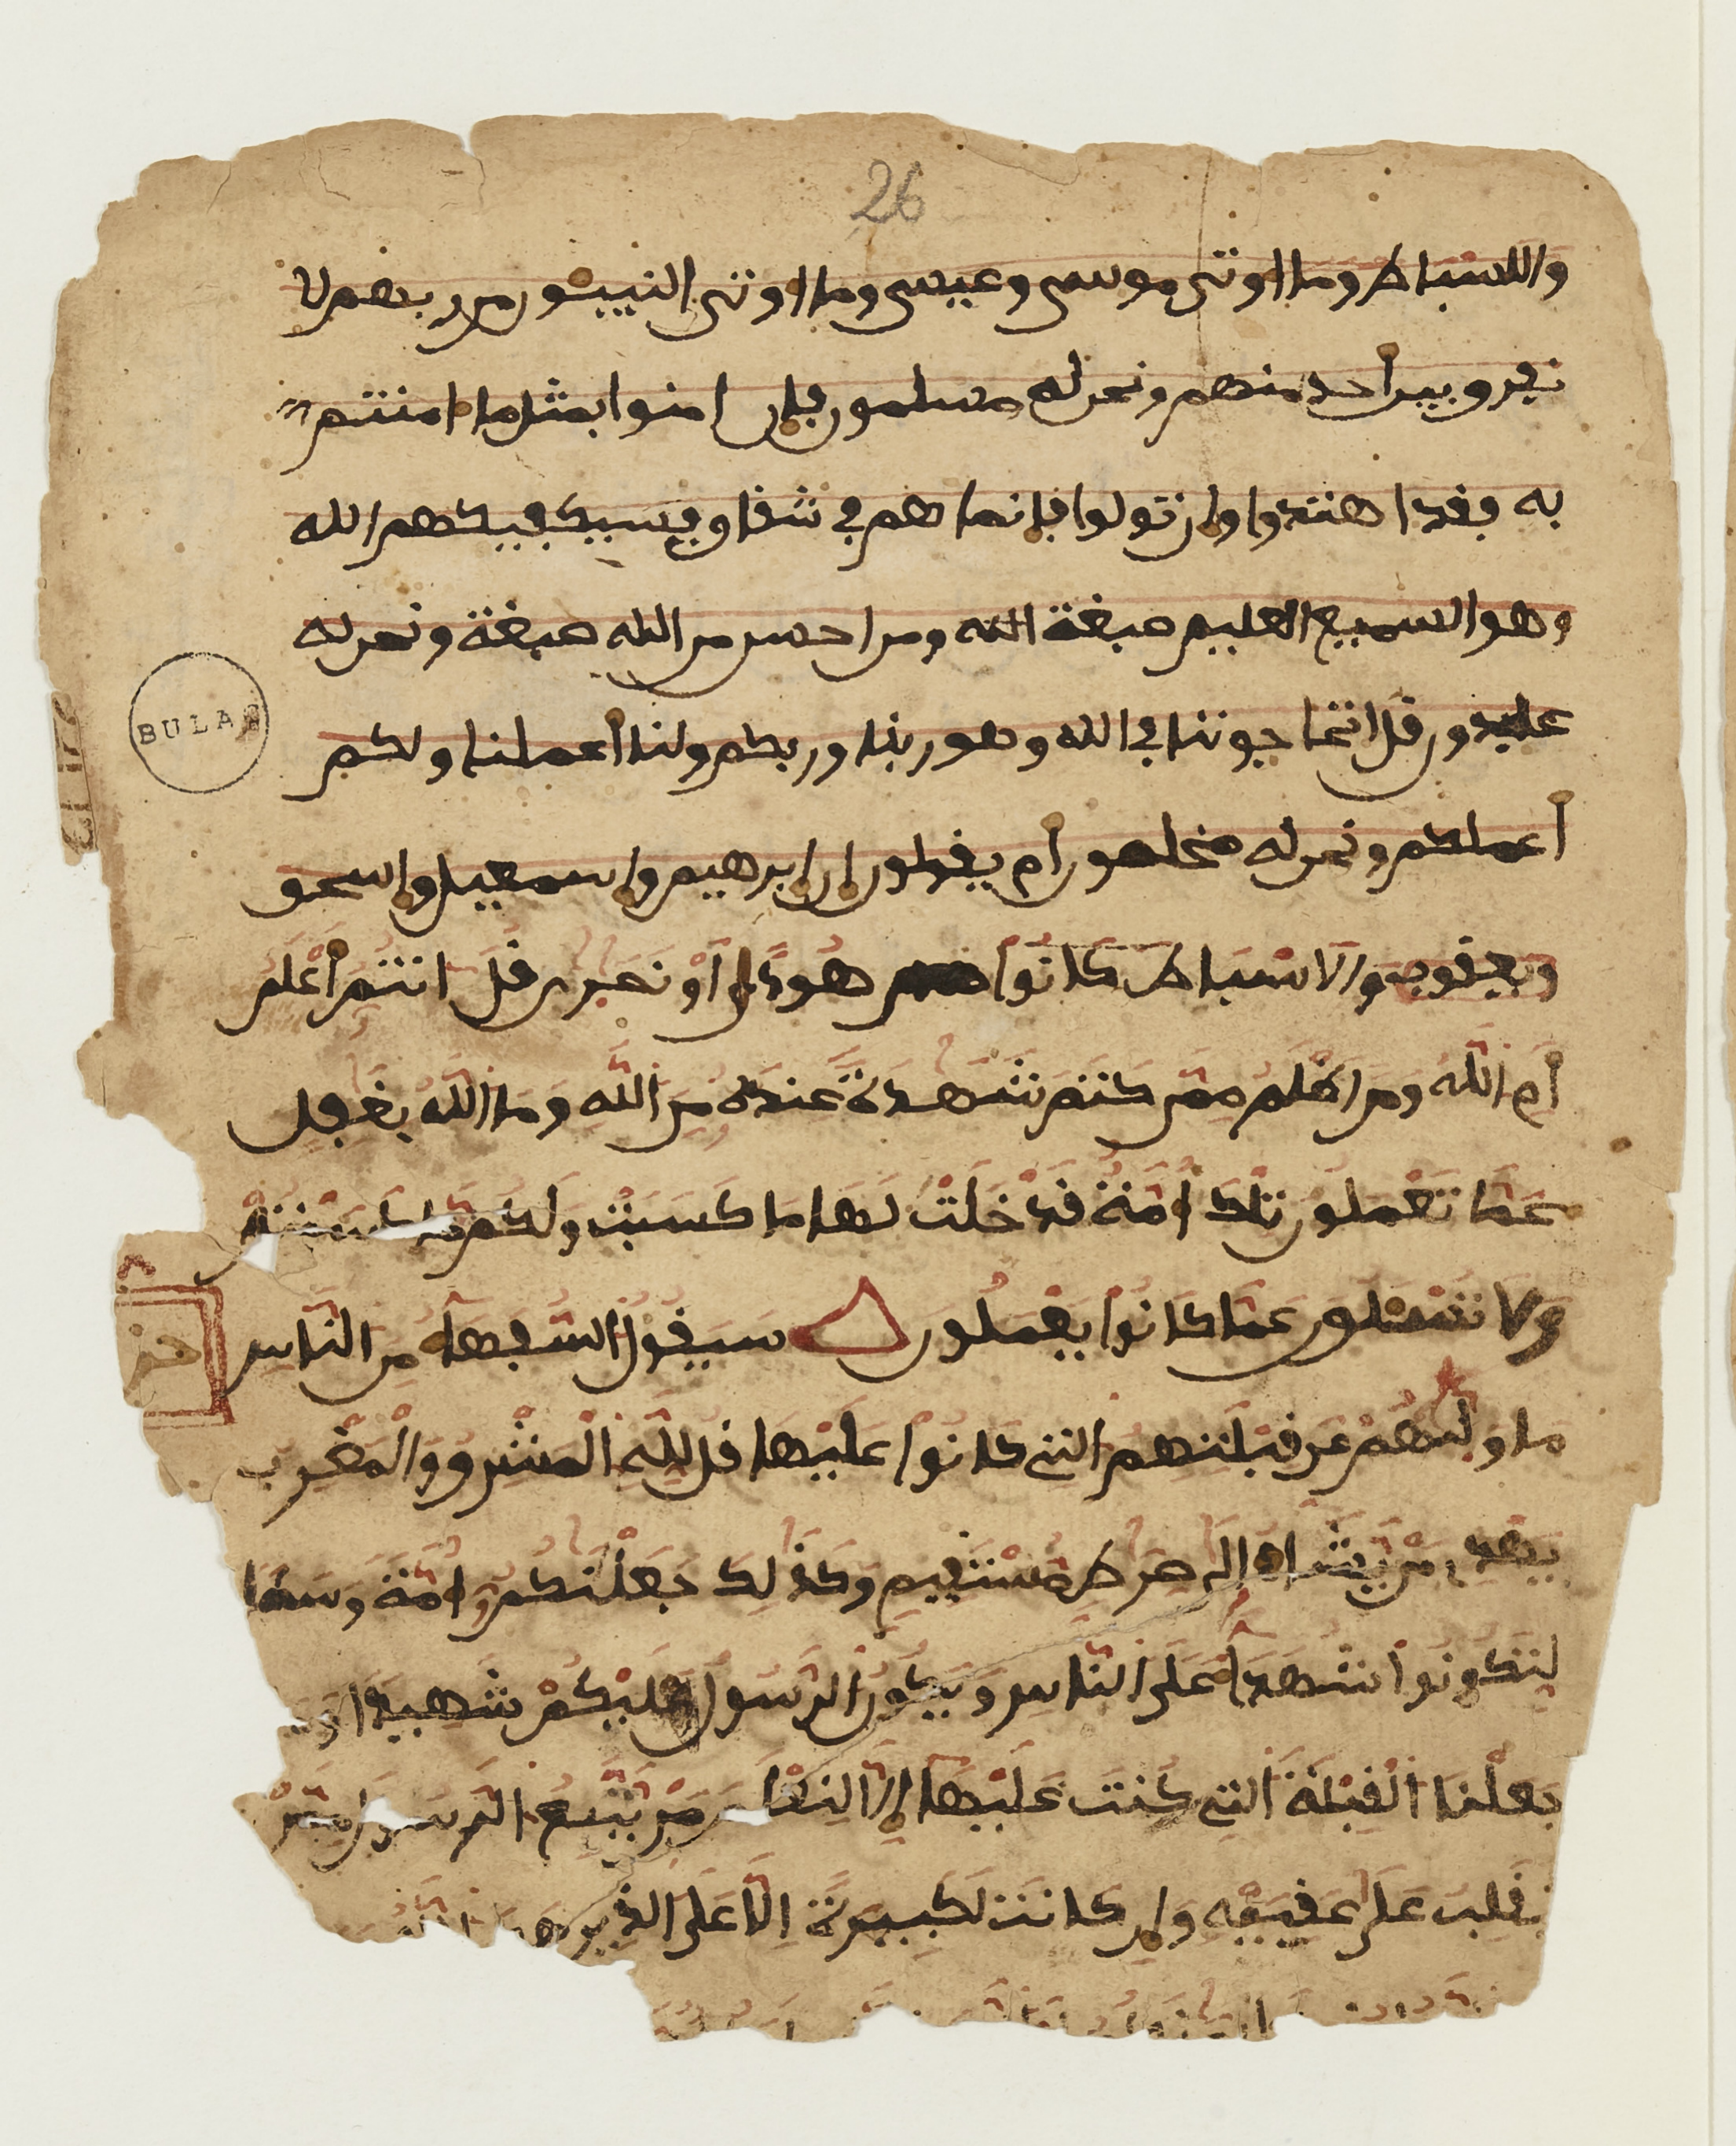 26
واللسباط وما اوتى موسى وعيسى وما اوتى النبيــٔون من ربهم لا
نفرق بين أحد منهم ونحن له مسلمون فإن امنوا بمثل ما امنتم
به فقد اهتدوا وإن تولوا فإنما هم في شقاق فسيكفيكهم الله
وهو السميع العليم صبغة الله ومن احسن من الله صبغة ونحن له
عبدون قل اتحاجوننا في الله وهو ربنا وربكم ولنا أعملنا ولكم
أعملكم ونحن له مخلصون أم يقولون إن إبرهيم وإسمعيل وإسحق
BULAC
ويعقوب والاسباط كانوا هودًا أَوْ نَصَرى قُلَ انتُمُ أَعْلَمُ
أَمِ اللَّهُ وَمَنَ اظْلَمُ مِمَّن كَتَمَ شَهَدَةً عِندَهُ مِنَ اللَّهِ وَمَا اللَّهُ بِغَفِلٍ
عَمَّا تَعْمَلُونَ تِلْكَ أُمَّةٌ قَدْ خَلَتْ لَهَا مَا كَسَبَتْ وَلَكُم مَا كَسَبْتُمْ
وَلَا تُسْـَٔلُونَ عَمَّا كَانُوا يَعْمَلُونَ سَيَقُولُ السُّفَهَاءُ مِنَ النَّاسِ
حزب
مَا وَلّىهُمْ عَن قِبْلَتِهِمُ التِي كَانُوا عَلَيْهَا قُل لِلَّهِ الْمَشْرِقُ وَالْمَغْرِبُ
يَهْدِي مَنْ يَشَاءُ إِلَى صِرَطٍ مُّسْتَقِيمٍ وَكَذَلِكَ جَعَلْنَكُمُ أُمَّةً وَسَطًا
لِتَكُونُوا شُهَدَاءَ عَلَى النَّاسِ وَيَكُونَ الرَّسُولُ عَلَيْكُمْ شَهِيدًا وَمَا
جَعَلْنَا الْقِبْلَةَ التِي كُنتَ عَلَيْهَا إِلَّا لِنَعْلَمَ مَنْ يَّتَّبِعُ الرَّسُولَ مِمَّنْ
يَنقَلِبُ عَلَى عَقِبَيْهِ وَإِن كَانَتْ لَكَبِيرَةً اِلَّا عَلَى الذِينَ هدى الله